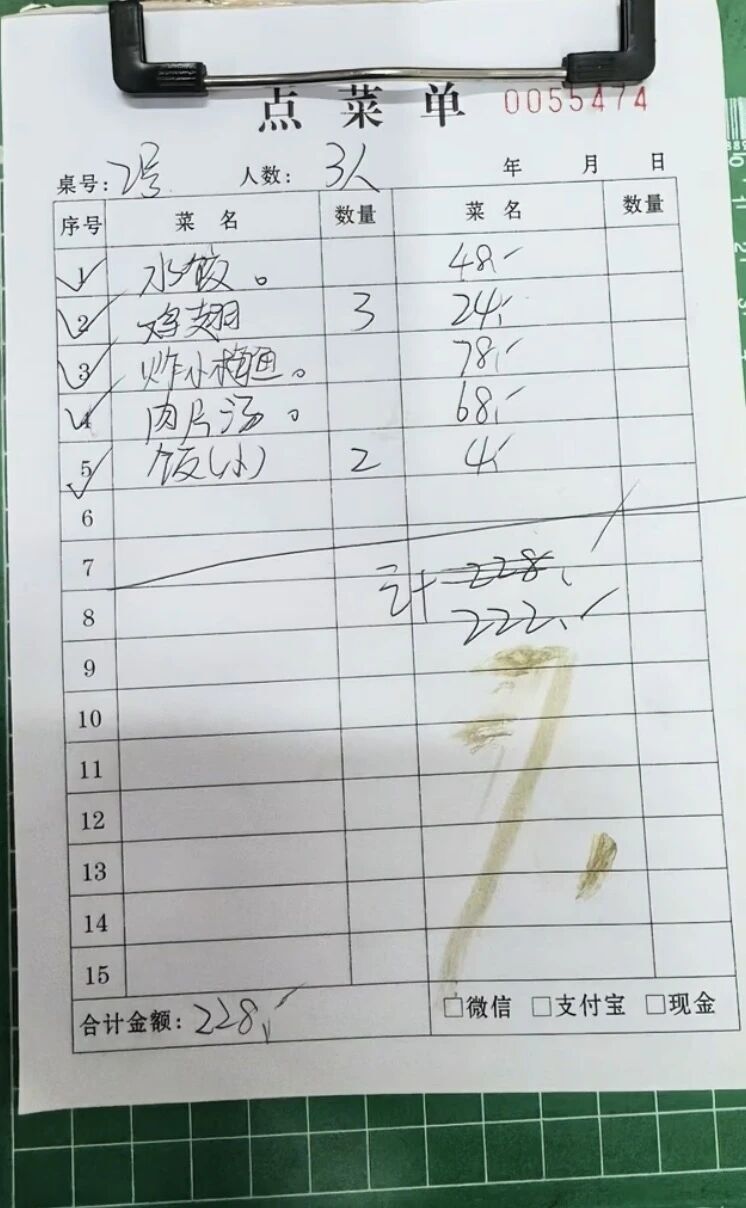 点菜单 0055474
桌号: 2号 人数: 3人 年 月 日
序号 菜名 数量 菜名 数量
1 水饺。 48.
2 鸡翅 3 24.
3 炸小梅鱼。 78.
4 肉片汤。 68.
5 饭(小) 2 4.
6
7
计 228.
8 222.
9
10
11
12
13
14
15
合计金额: 228. □微信 □支付宝 □现金